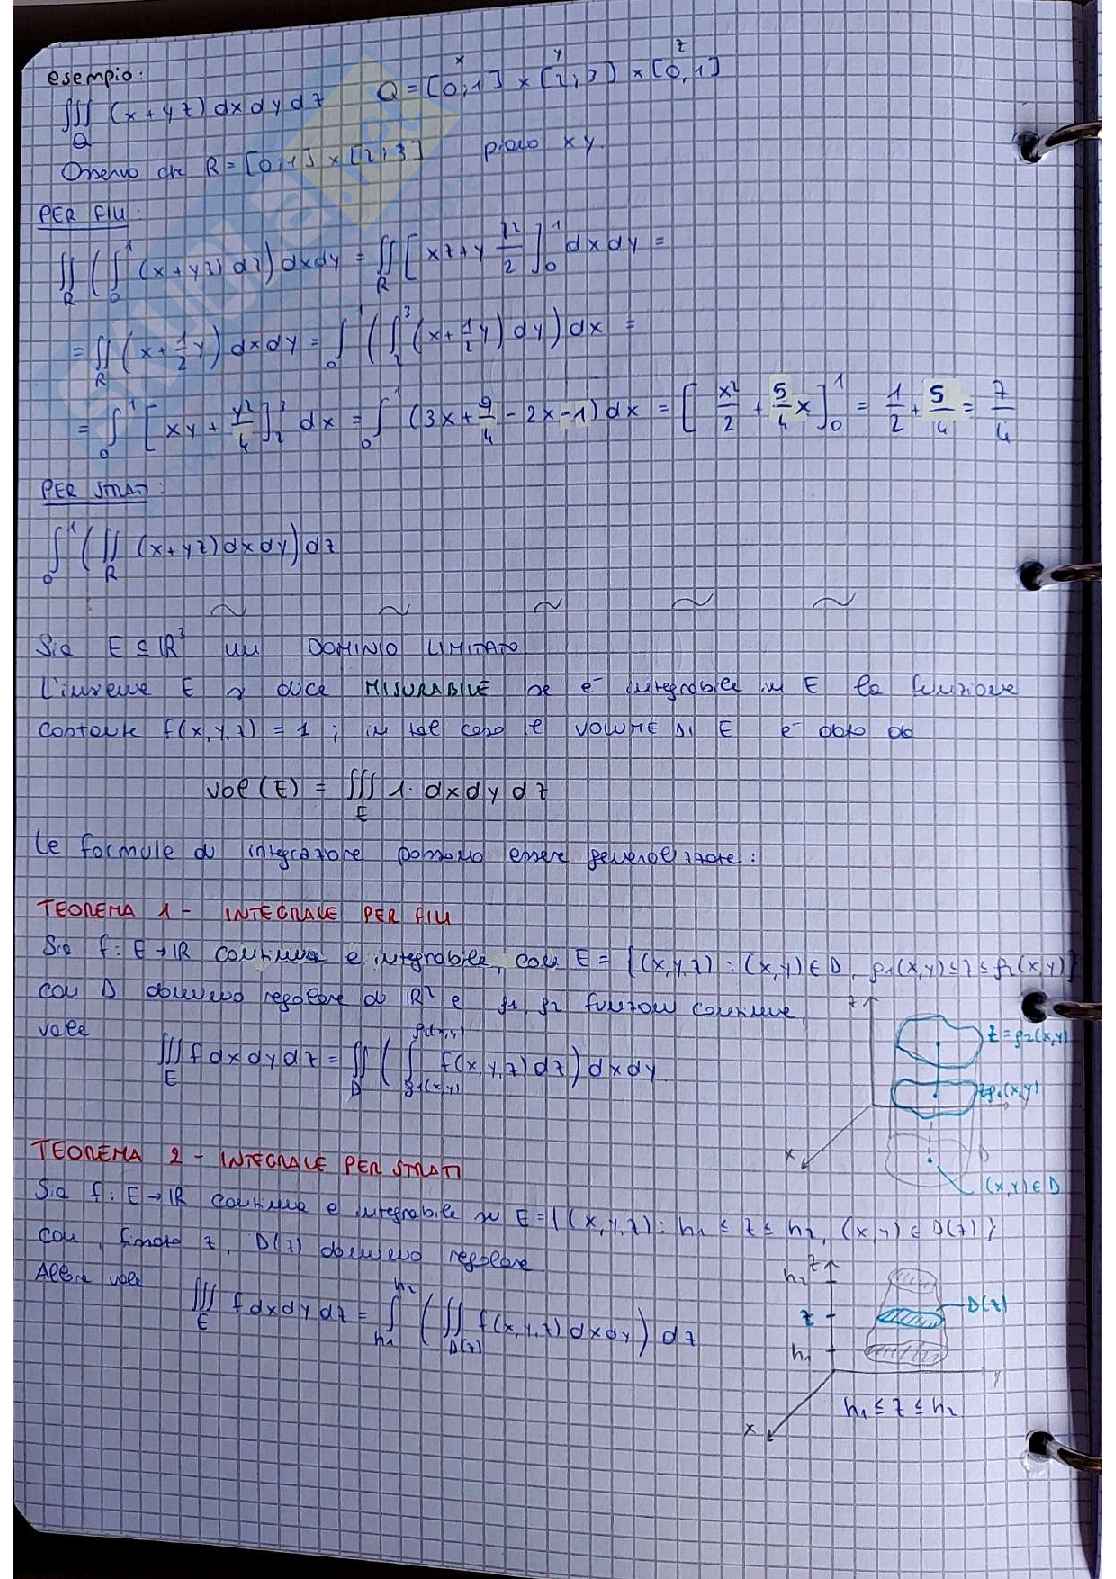 esempio:
x y z
∭_Q (x+yz) dx dy dz Q = [0,1] × [2,3] × [0,1]
Osservo che R = [0,1] × [2,3] piano xy.
PER FILI:
∬_R (∫_0^1 (x+yz) dz) dx dy = ∬_R [xz + y z²/2]_0^1 dx dy =
= ∬_R (x + 1/2 y) dx dy = ∫_0^1 (∫_2^3 (x + 1/2 y) dy) dx =
= ∫_0^1 [xy + y²/4]_2^3 dx = ∫_0^1 (3x + 9/4 - 2x - 1) dx = [x²/2 + 5/4 x]_0^1 = 1/2 + 5/4 = 7/4
PER STRATI:
∫_0^1 (∬_R (x+yz) dx dy) dz
~ ~ ~ ~ ~
Sia E ⊆ ℝ³ un DOMINIO LIMITATO
L'insieme E si dice MISURABILE se è integrabile in E la funzione
costante f(x,y,z) = 1 ; in tal caso il VOLUME DI E è dato da
vol(E) = ∭_E 1· dx dy dz
Le formule di integrazione possono essere generalizzate:
TEOREMA 1 - INTEGRALE PER FILI
Sia f: E → ℝ continua e integrabile, con E = {(x,y,z) : (x,y) ∈ D, g₁(x,y) ≤ z ≤ g₂(x,y)}
con D dominio regolare di ℝ² e g₁, g₂ funzioni continue
vale
∭_E f dx dy dz = ∬_D (∫_{g₁(x,y)}^{g₂(x,y)} f(x,y,z) dz) dx dy
z
z = g₂(x,y)
z=g₁(x,y)
x
D
(x,y) ∈ D
TEOREMA 2 - INTEGRALE PER STRATI
Sia f: E → ℝ continua e integrabile su E = {(x,y,z) : h₁ ≤ z ≤ h₂, (x,y) ∈ D(z)}
con, fissato z, D(z) dominio regolare
Allora vale
∭_E f dx dy dz = ∫_{h₁}^{h₂} (∬_{D(z)} f(x,y,z) dx dy) dz
z
h₂
z
D(z)
h₁
y
x
h₁ ≤ z ≤ h₂